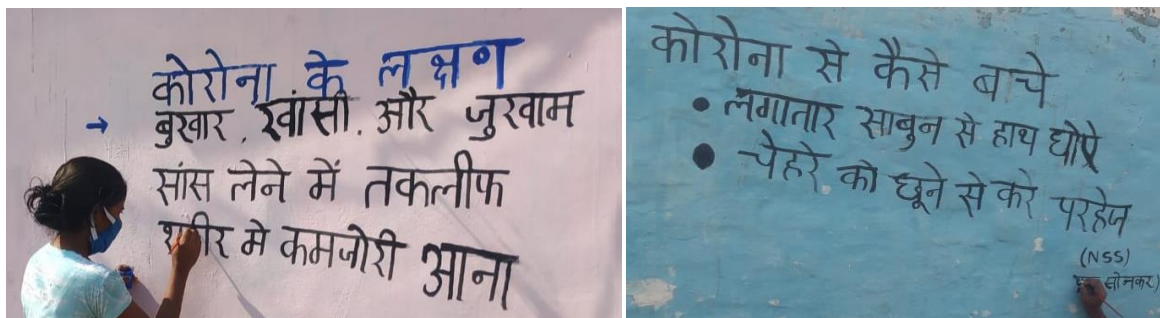 कोरोना के लक्षण
→ बुखार, खांसी, और जुखाम
सांस लेने में तकलीफ
शरीर मे कमजोरी आना
कोरोना से कैसे बाचे
• लगातार साबुन से हाथ धोऐ
• चेहरे को छूने से करे परहेज
(NSS)
सोनकर)